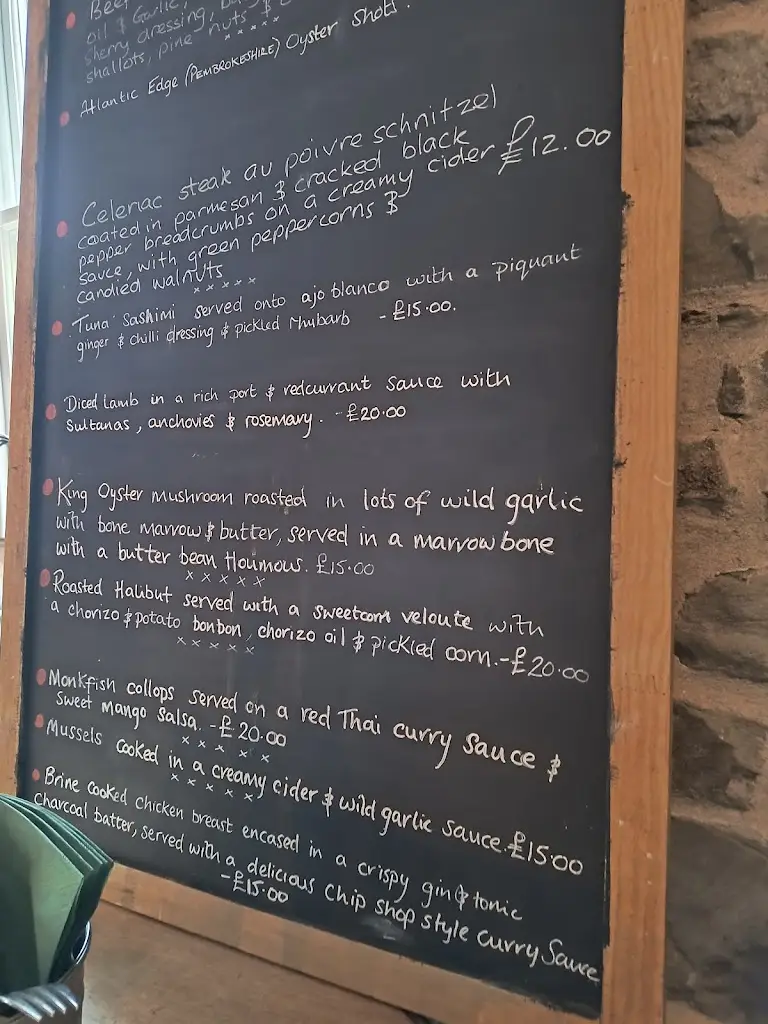 Beef
oil & Garlic,
sherry dressing,
shallots, pine nuts &
x x x x x
Atlantic Edge (PEMBROKESHIRE) Oyster Shots.
Celeriac steak au poivre schnitzel
coated in parmesan & cracked black
pepper breadcrumbs on a creamy cider £12.00
sauce, with green peppercorns &
candied walnuts
x x x x x
Tuna sashimi served onto ajo blanco with a piquant
ginger & chilli dressing & pickled rhubarb - £15.00.
Diced Lamb in a rich port & redcurrant sauce with
Sultanas, anchovies & rosemary. - £20.00
King Oyster mushroom roasted in lots of wild garlic
with bone marrow & butter, served in a marrowbone
with a butter bean Houmous. £15.00
x x x x x
Roasted Halibut served with a sweetcorn veloute with
a chorizo & potato bonbon, chorizo oil & pickled corn. - £20.00
x x x x x
Monkfish collops served on a red Thai curry sauce &
sweet mango salsa. - £20.00
x x x x x
Mussels cooked in a creamy cider & wild garlic sauce. £15.00
x x x x x
Brine cooked chicken breast encased in a crispy gin & tonic
charcoal batter, served with a delicious chip shop style curry Sauce
- £15.00